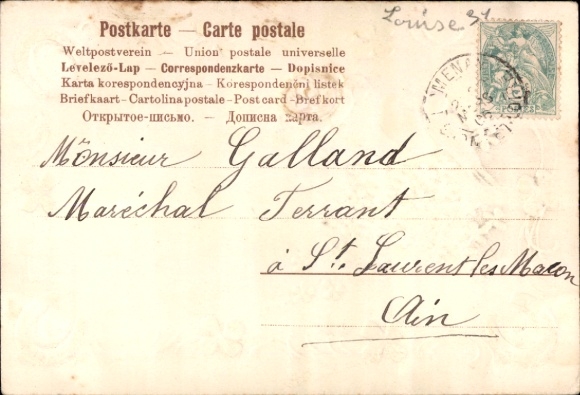 Postkarte — Carte postale
Weltpostverein — Union postale universelle
Levelező-Lap — Correspondenzkarte — Dopisnice
Karta korespondencyjna — Korespondenčni listek
Briefkaart - Cartolina postale - Post card - Brefkort
Открытое-письмо. — Дописна карта.
Louise 31
Monsieur Galland
Maréchal Ferrant
à St. Laurent les Macon
Ain